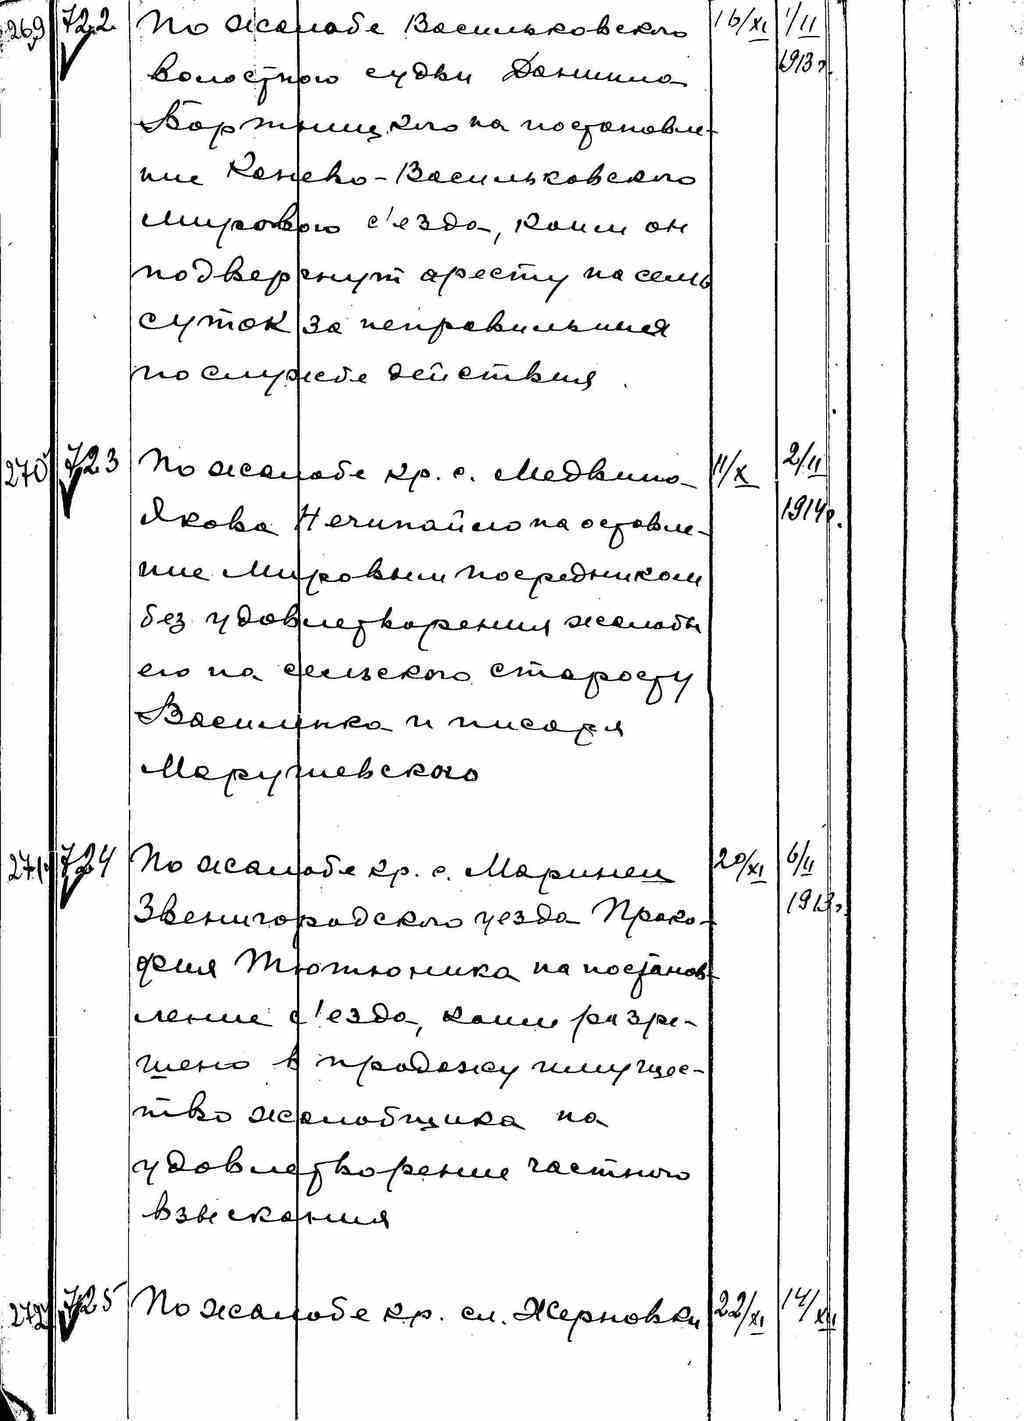 269 722 По жалобе Васильковского 16/XI 1/II
волостного судьи Даниила 1913 г.
Бортницкого на постановле-
ние Канево-Васильковского
Мирового с'езда, коим он
подвергнут аресту на семь
суток за неправильныя
по службе действия.
270 723 По жалобе кр. с. Медвина 11/X 2/II
Якова Нечипайло на оставле- 1914 г.
ние Мировым посредником
без удовлетворения жалобы
его на сельского старосту
Василенко и писаря
271 724 По жалобе кр. с. Маринец 20/XI 6/II
Звенигородского уезда Проко- 1913 г.
фия Тютюника на постанов-
ление с'езда, коим разре-
шено в продажу имущес-
тво жалобщика на
удовлетворение частного
взыскания
272 725 По жалобе кр. сл. Жерновки 22/XI 14/XII